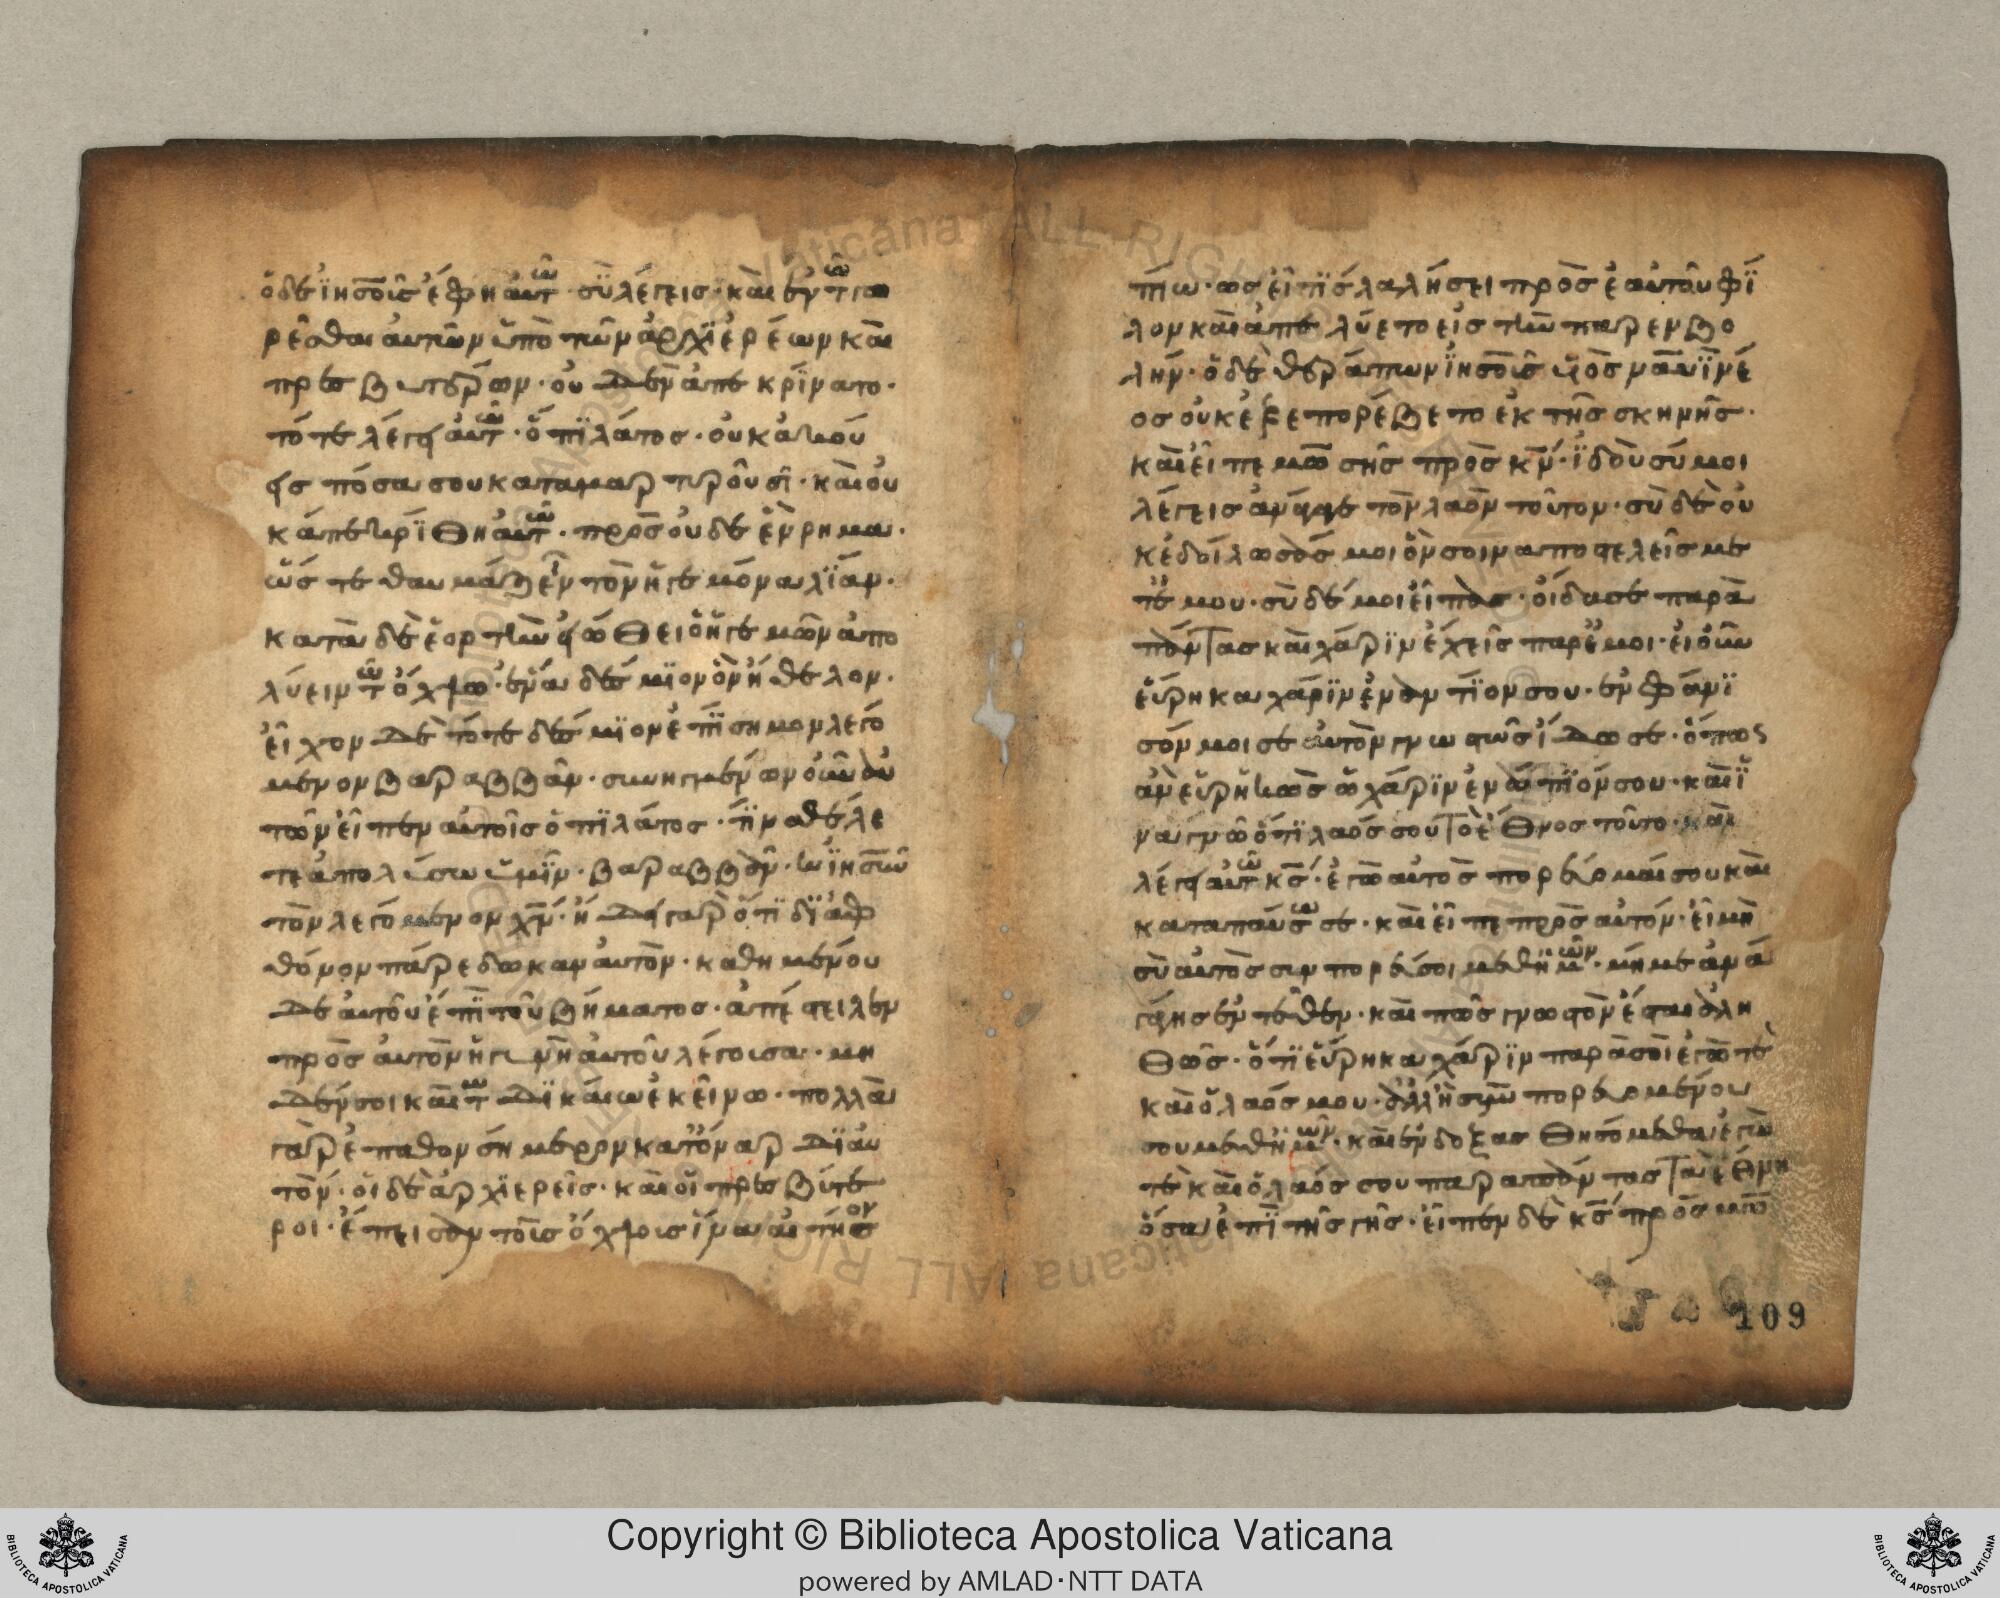 ὁ δὲ ἰησοῦς ἔφη αὐτῶ· σὺ λέγεις· καὶ ἐν τῶ κα
ρεῖσθαι αὐτὸν ὑπὸ τῶν ἀρχϊερέων καὶ
πρεσβυτέρων· οὐδὲν ἀπεκρίνατο·
τότε λέγει αὐτῶ· ὁ πϊλάτος· οὐκ ἀκού
εις πόσα σου καταμαρτυροῦσϊ· καὶ οὐ
κ ἀπεκρίθη αὐτῶ· πρὸς οὐδὲ ἓν ρημα·
ὥστε θαυμάζειν τὸν ἡγεμόνα λΐαν·
κατὰ δὲ ἑορτὴν εἰώθει ὁ ἡγεμὼν ἀπο
λύειν τῶ ὄχλω· ἕνα δέσμϊον ὃν ἤθελον·
εἶχον δὲ τότε δέσμϊον ἐπίσημον λεγό
μενον βαραββᾶν· συνηγμένων οὖν αὐ
τῶν εἶπεν αὐτοῖς ὁ πϊλάτος· τίνα θέλε
τε ἀπολύσω ὑμῖν· βαραββᾶν· ἢ ἰησοῦν
τὸν λεγόμενον χν· ἤδει γὰρ ὅτϊ δϊὰ φ
θόνον παρέδωκαν αὐτὸν· καθημένου
δὲ αὐτοῦ ἐπὶ τοῦ βήματος· ἀπέστειλεν
πρὸς αὐτὸν ἡ γυνὴ αὐτοῦ λέγουσα· μη
δὲν σοι καὶ τῶ δϊκαίω ἐκείνω· πολλὰ
γὰρ ἔπαθον σήμερον κατ' ὄναρ δϊ' αὐ
τόν· οἱ δὲ ἀρχϊερεῖς· καὶ οἱ πρεσβύτε
ροι· ἔπεισαν τοὺς ὄχλους ἵνα αἰτήσον
πίω· ὡς εἴ τϊς λαλήσει πρὸς ἑαυτοῦ φΐ
λον καὶ ἀπελύετο εἰς τὴν παρεμβο
λήν· ὁ δὲ θεράπων ἰησοῦς υἱὸς ναυῒ νέ
ος οὐκ ἐξεπορεύετο ἐκ τῆς σκηνῆς·
καὶ εἶπε μωσῆς πρὸς κν· ἰδοὺ σύ μοι
λέγεις ἀνάγαγε τὸν λαὸν τοῦτον· σὺ δὲ οὐ
κ ἐδήλωσάς μοι ὃν συναποστελεῖς με
τ' ἐμου· σὺ δέ μοι εἶπας· οἶδα σε παρὰ
πάντας καὶ χάρϊν ἔχεις παρ' ἐμοι· εἰ οὖν
εὕρηκα χάρϊν ἐναντΐον σου· ἐμφάνϊ
σόν μοι σε αὐτὸν γνωστῶς ἴδω σε· ὅπως
ἂν εὑρηκὼς ὦ χάρϊν ἐναντΐον σου· καὶ ἵ
να γνῶ ὅτϊ λαός σου τὸ ἔθνος τοῦτο· καὶ
λέγει αὐτῶ κς· ἐγὼ αὐτὸς πορεύσομαί σου καὶ
καταπαύσω σε· καὶ εἶπε πρὸς αὐτόν· εἰ μὴ
σὺ αὐτὸς συμπορεύσοι μεθ' ἡμῶν· μή με ἀνα
γάγης ἐντεῦθεν· καὶ πῶς γνωστὸν ἔσται ἀλη
θῶς· ὅτϊ εὕρηκα χάρϊν παρὰ σοὶ ἐγώ τε
καὶ ὁ λαός μου· ἀλλ' ἢ συμπορευομένου
σου μεθ' ἡμῶν· καὶ ἐνδοξασθησόμεθα ἐγώ
τε καὶ ὁ λαός σου παρὰ πάντας τὰ ἔθνη
ὅσα ἐπὶ τῆς γῆς· εἶπεν δὲ κς πρὸς μω
109
Copyright © Biblioteca Apostolica Vaticana
powered by AMLAD·NTT DATA
BIBLIOTECA APOSTOLICA VATICANA
BIBLIOTECA APOSTOLICA VATICANA